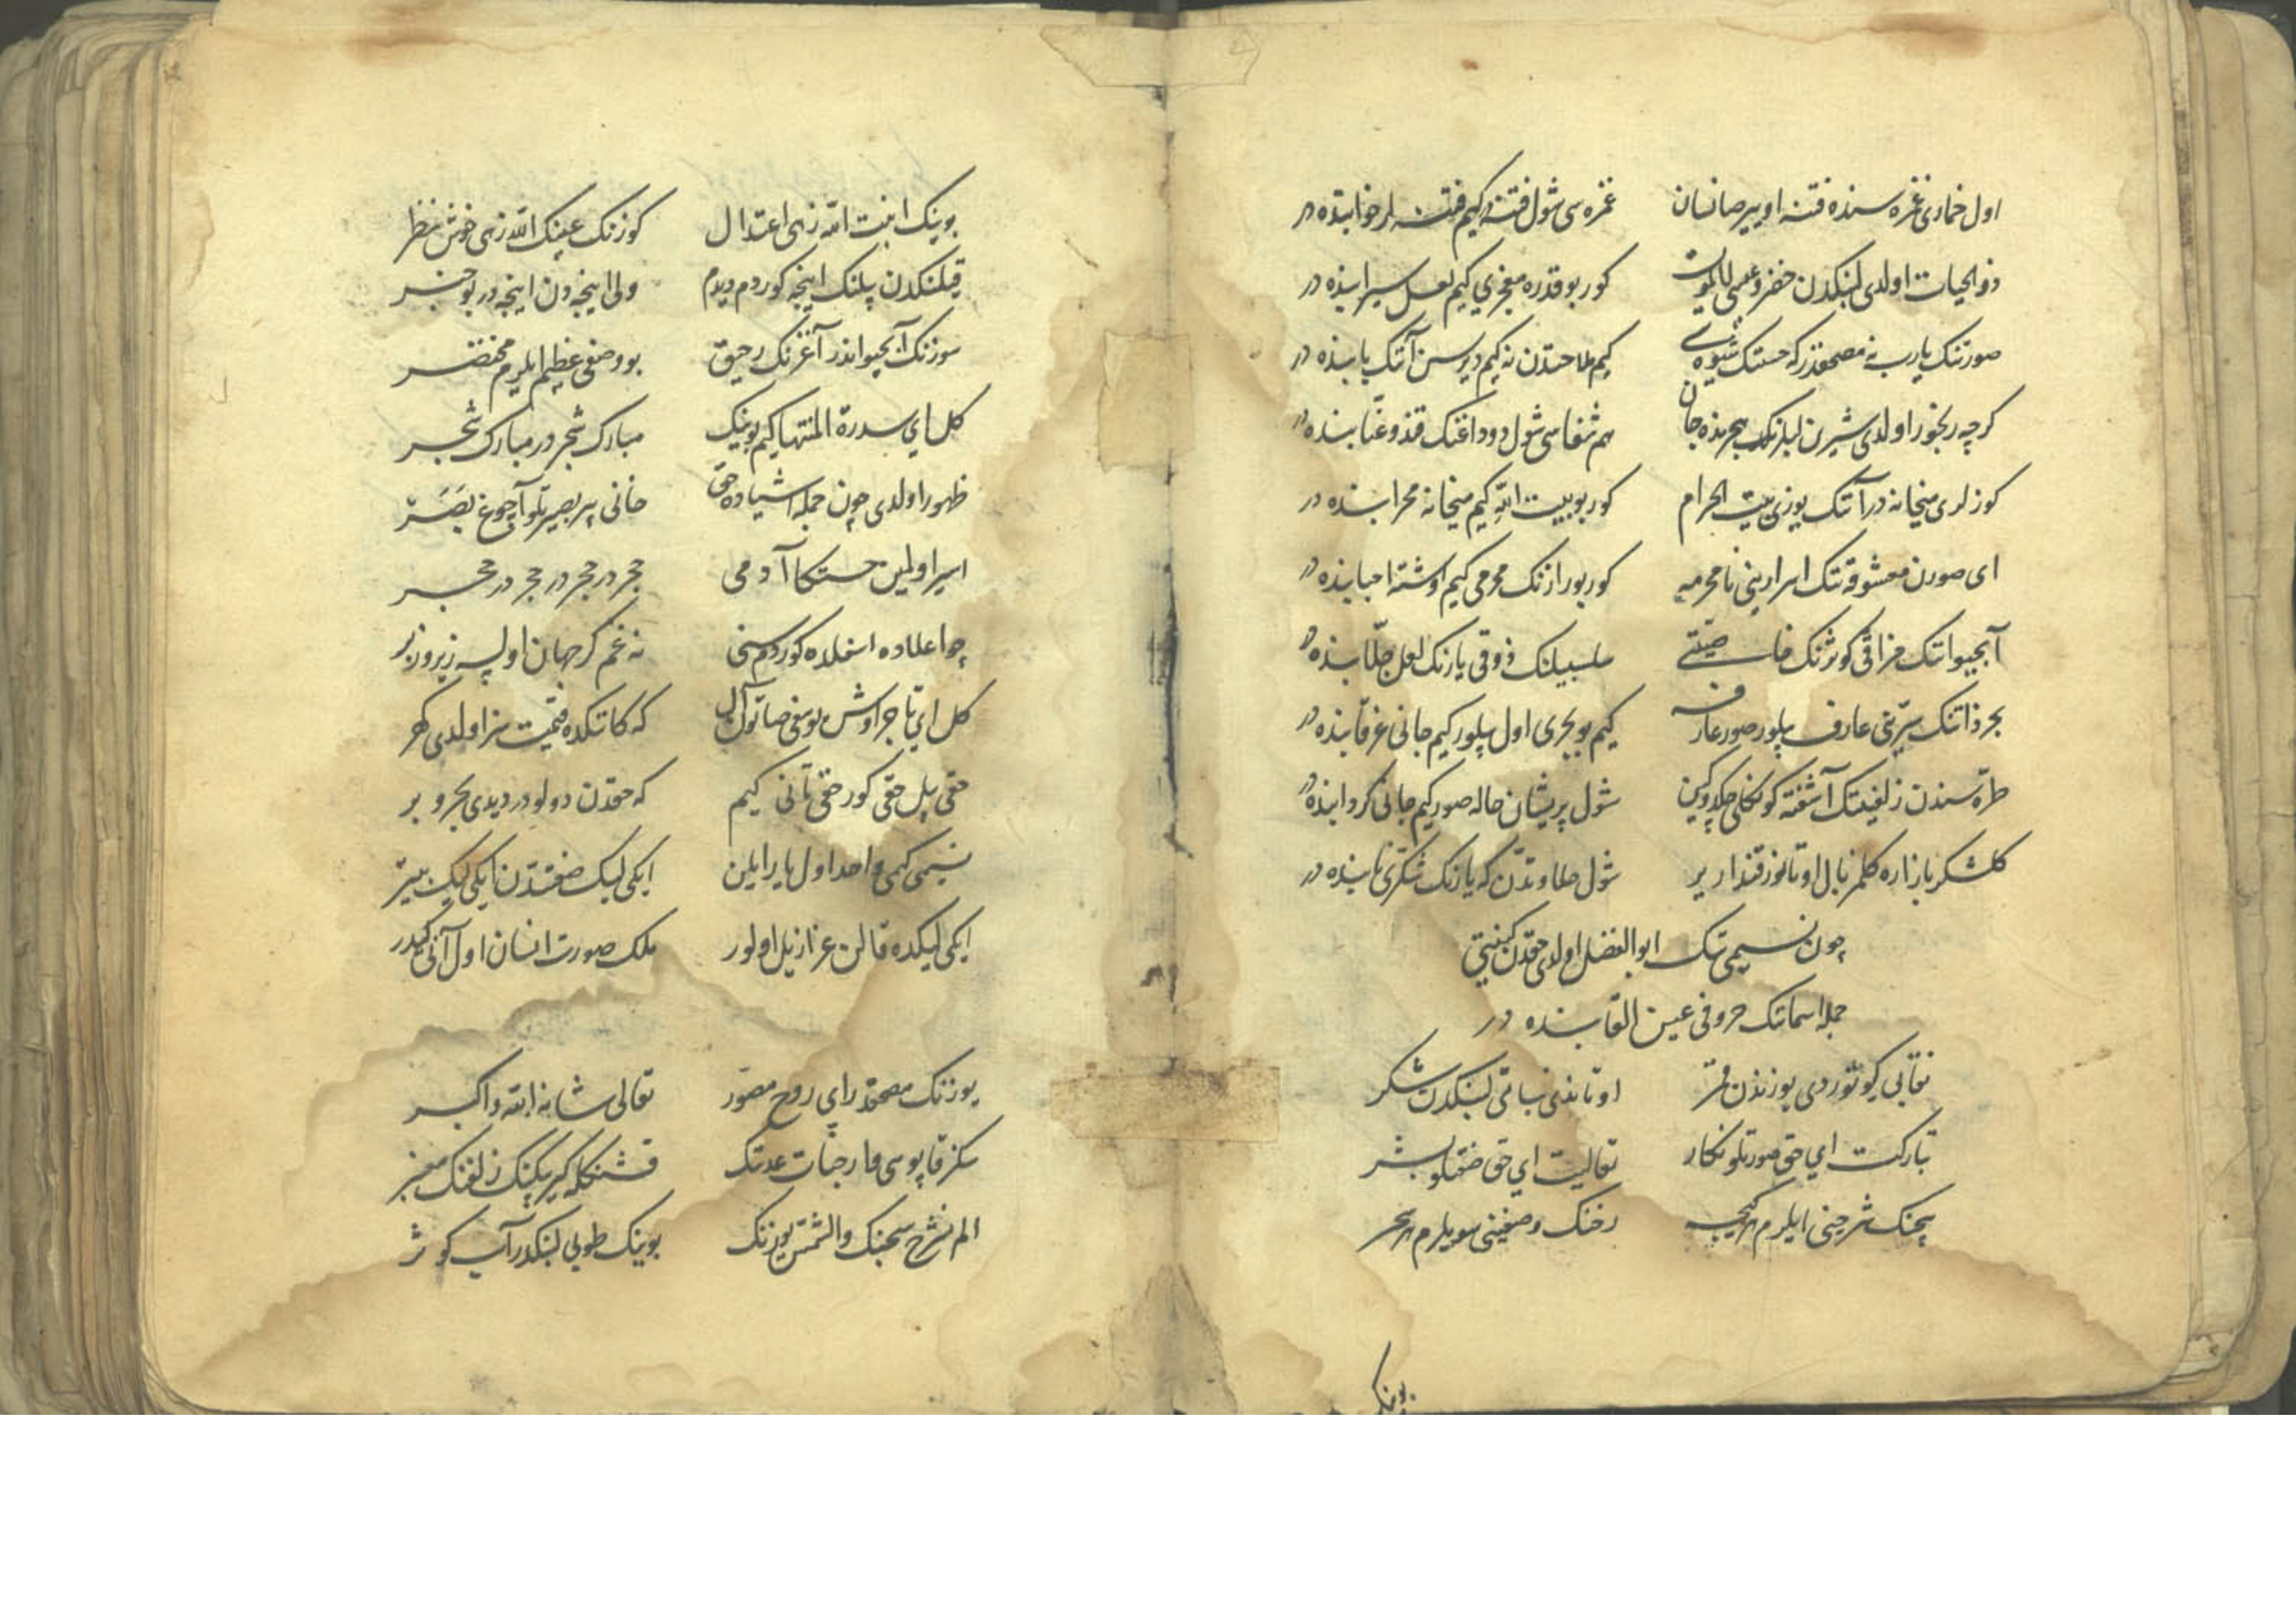 اول خماری غمزه سنده فتنه اویر صانسان غمزه سی شول فتنه در کیم فتنه لر خوابنده در
ذو الحیات اولدی لبنکدن خضر و عیسی لایموت کور بو قدره معجزی کیم لعل سیرابنده در
صورتنک یارب نه مصحفدر که حسنک شیوه سی کیم ملاحتدن نه کیم دیرسن آنک بابنده در
کرچه رنجور اولدی شیرین لبلرنک هجرنده جان هم شفاسی شول دوداغنک قند و عنّابنده در
کوزلری میخانه در آنک یوزی بیت الحرام کور بو بیت اللّهِ کیم میخانه محرابنده در
ای صورن معشوقه تنک اسرارینی نامحرمه کور بو رازنک محرمی کیم اوشته احبابنده در
آبحیوانک مذاقی کوثرنک خاصیّتی سلسبیلنک ذوقی یارنک لعل جلّابنده در
بحر ذاتنک سرّینی عارف بیلور صور عارفه کیم بو بحری اول بیلور کیم جانی غرقابنده در
طرّه سندن زلفینک آشفته کونکلی شول پریشان حاله صور کیم جانی کردابنده در
کلشکر بازاره کلمز بال اوتانور قند اریر شول حلاوتدن که یارنک شکّر نابنده در
چون نسیمی نک ابو الفضل اولدی حقدن کنیتی
جمله اسمانک حروفی عین القابنده در
نقابی کوتوردی یوزندن قمر اوتاندی نباتی لبنکدن شکر
تبارکت ای حق صورتلو نکار تعالیت ای حق صفتلو بشر
سچنک شرحینی ایلرم هر کیجه رخنک وصفینی سویلرم هر سحر
بوینک
بوینک انبت اللّه زهی اعتدال کوزنک عینک اللّه زهی خوش نظر
قیلنکدن بیلنک اینجه کوردم دیدم ولی اینجه دن اینجه در بو خبر
سوزنک آبحیواندر آغزنک رحیق بو وصفی عظیم ایلرم مختصر
کل ای سدرة المنتها کیم بوینک مبارک شجر در مبارک شجر
ظهور اولدی چون جمله اشیاده حق خانی بیر بصیرتلو آچوغ بَصَر
اسیر اولمین حسنکا آدمی حجر در حجر در حجر در حجر
چو اعلاده اسفلده کوردم سنی نه غم کر جهان اولسه زیر و زبر
کل ای تاجر اوش یوسفی صاتون آل که کانکده قیمت سز اولدی کهر
حقی بیل حقی کور حقی تانی کیم که حقدن دولو در دیدی بحر و بر
نسیمی کمی واحد اول یار ایلن ایکی لیک صفتدن ایکی لیک بیتر
ایکی لیکده قالن عزازیل اولور ملک صورت انسان اول آنی کیدر
یوزنک مصحفدر ای روح مصوّر تعالی شانه الله و اکبر
سکز قاپوسی وار جنّات عدنک قشنکله کیرپیکنک زلفنک معنبر
الم نشرح سچنک و الشمس یوزنک بوینک طوبی لبنکدر آب کوثر